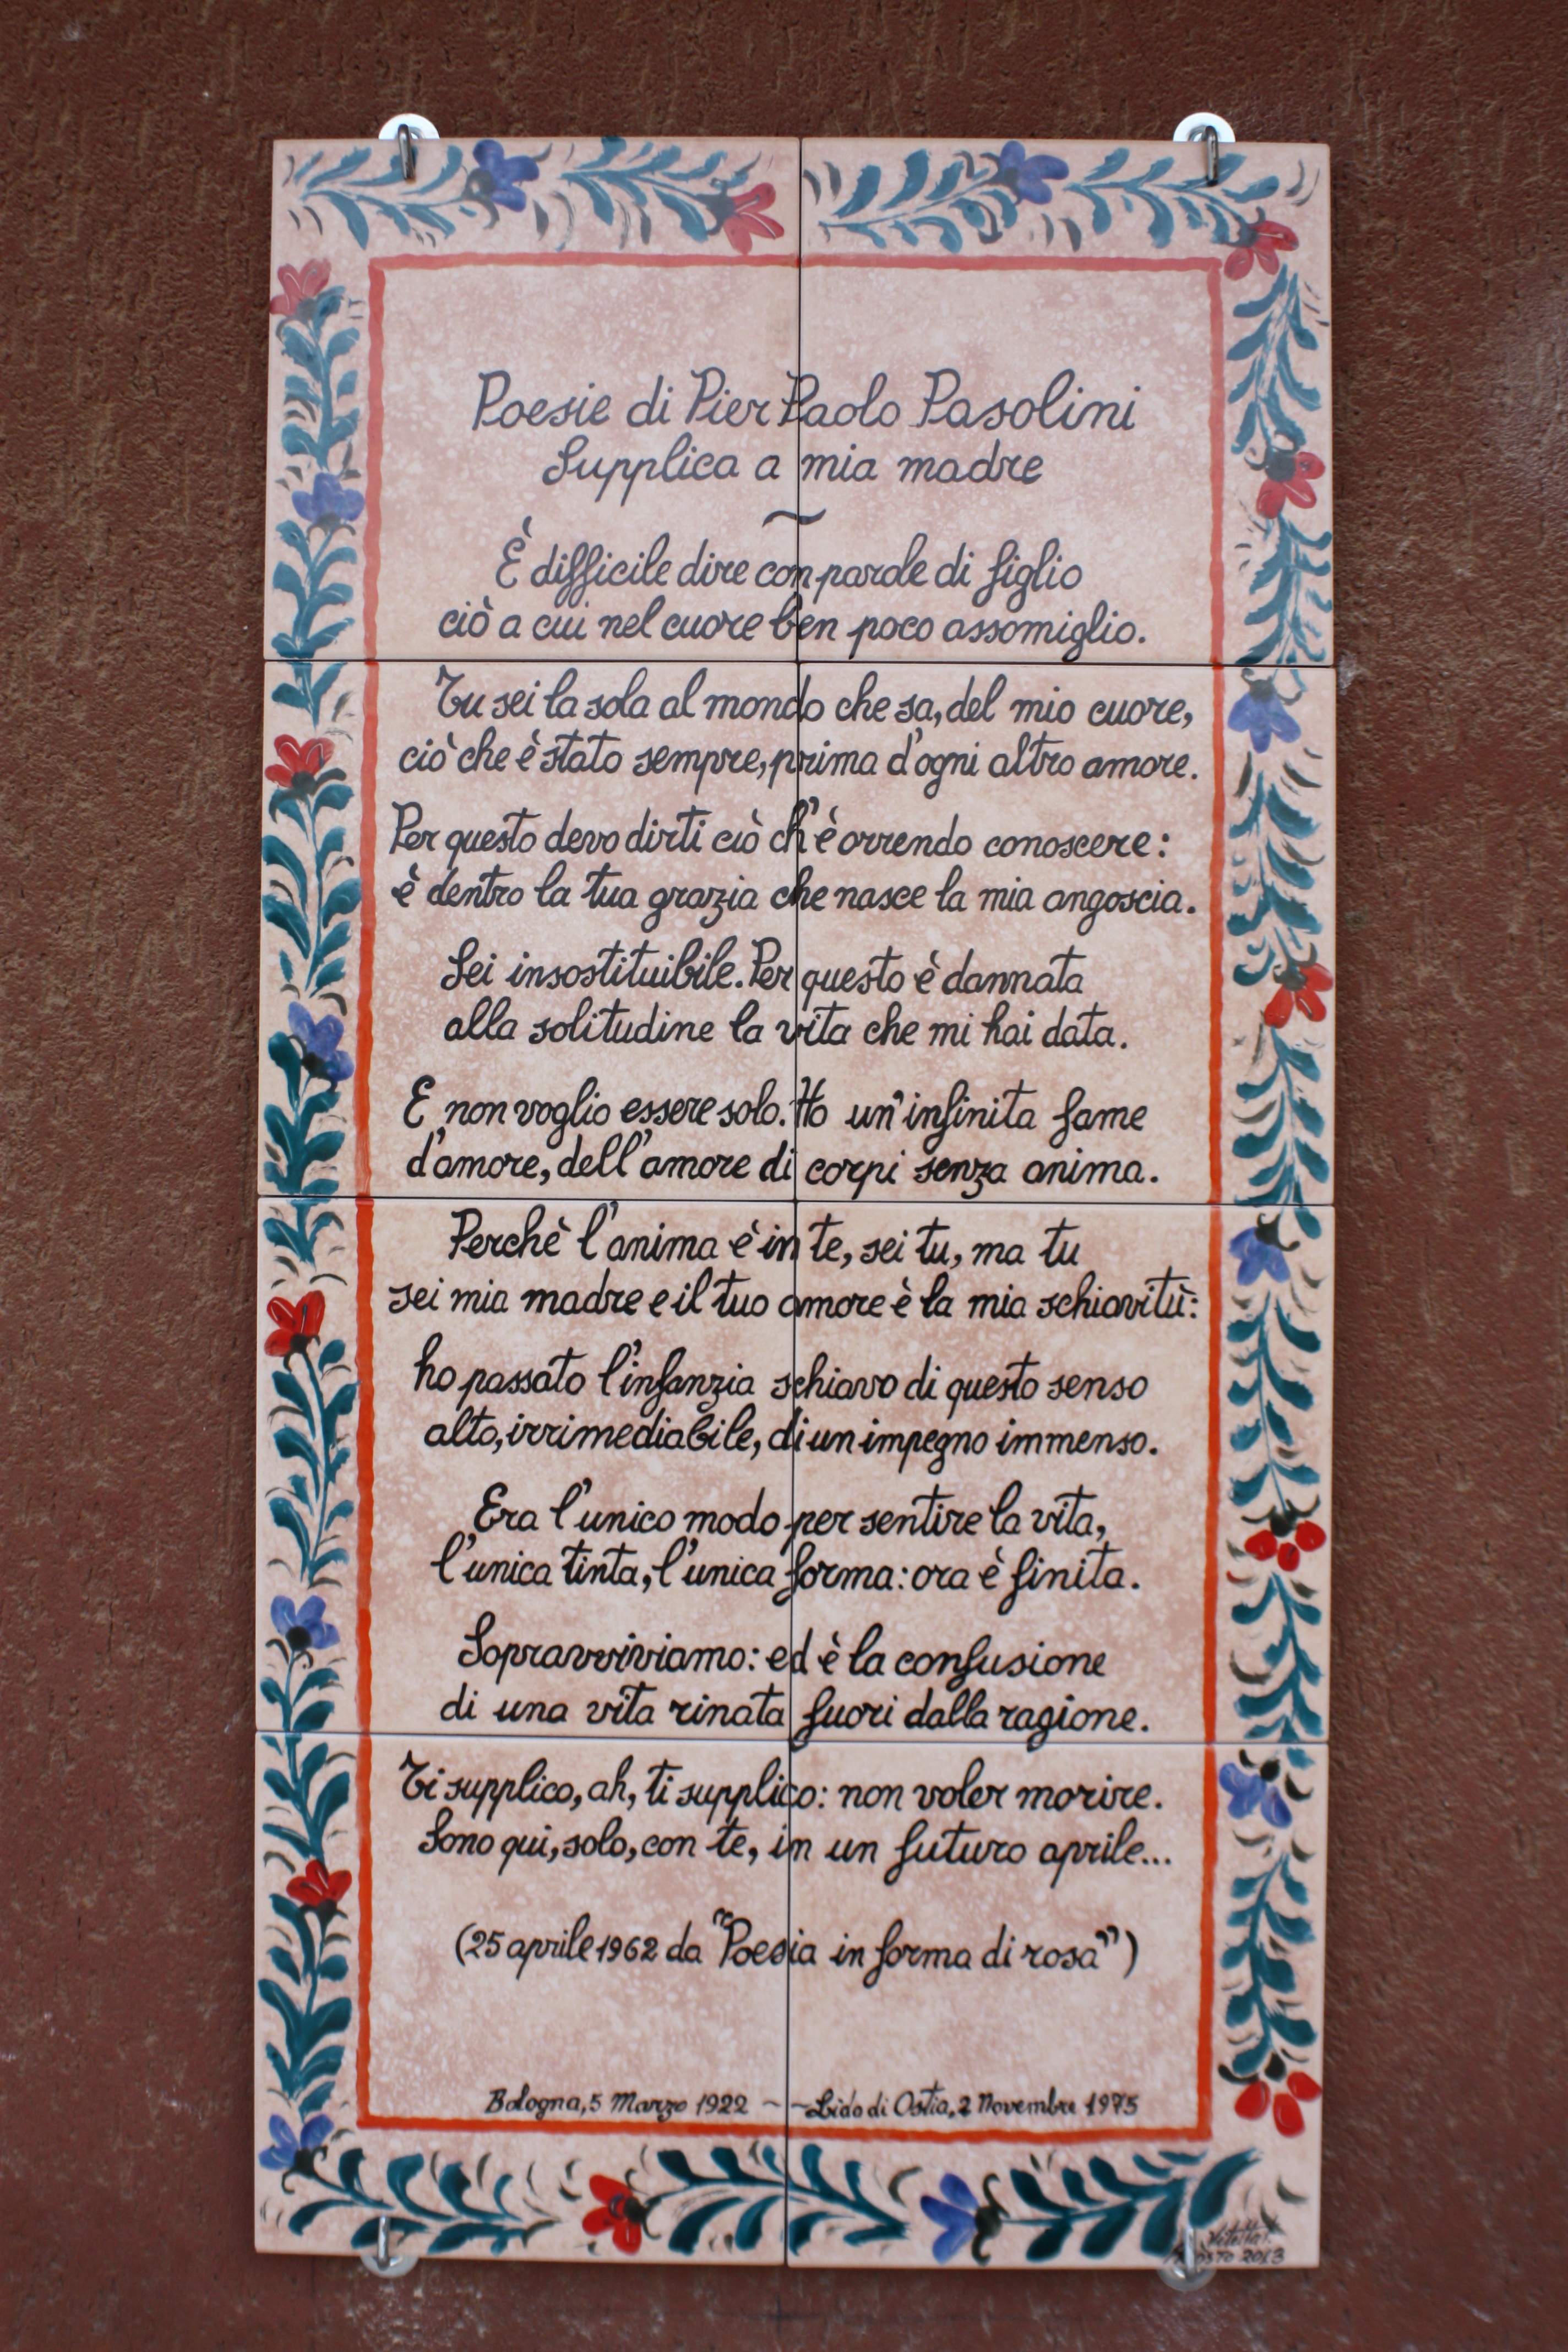 Poesie di Pier Paolo Pasolini
Supplica a mia madre
~
È difficile dire con parole di figlio
ciò a cui nel cuore ben poco assomiglio.
Tu sei la sola al mondo che sa, del mio cuore,
ciò che è stato sempre, prima d'ogni altro amore.
Per questo devo dirti ciò ch'è orrendo conoscere:
è dentro la tua grazia che nasce la mia angoscia.
Sei insostituibile. Per questo è dannata
alla solitudine la vita che mi hai data.
E non voglio essere solo. Ho un'infinita fame
d'amore, dell'amore di corpi senza anima.
Perchè l'anima è in te, sei tu, ma tu
sei mia madre e il tuo amore è la mia schiavitù:
ho passato l'infanzia schiavo di questo senso
alto, irrimediabile, di un impegno immenso.
Era l'unico modo per sentire la vita,
l'unica tinta, l'unica forma: ora è finita.
Sopravviviamo: ed è la confusione
di una vita rinata fuori dalla ragione.
Ti supplico, ah, ti supplico: non voler morire.
Sono qui, solo, con te, in un futuro aprile...
(25 aprile 1962 da "Poesia in forma di rosa")
Bologna, 5 Marzo 1922 ~ ~ Lido di Ostia, 2 Novembre 1975
2013